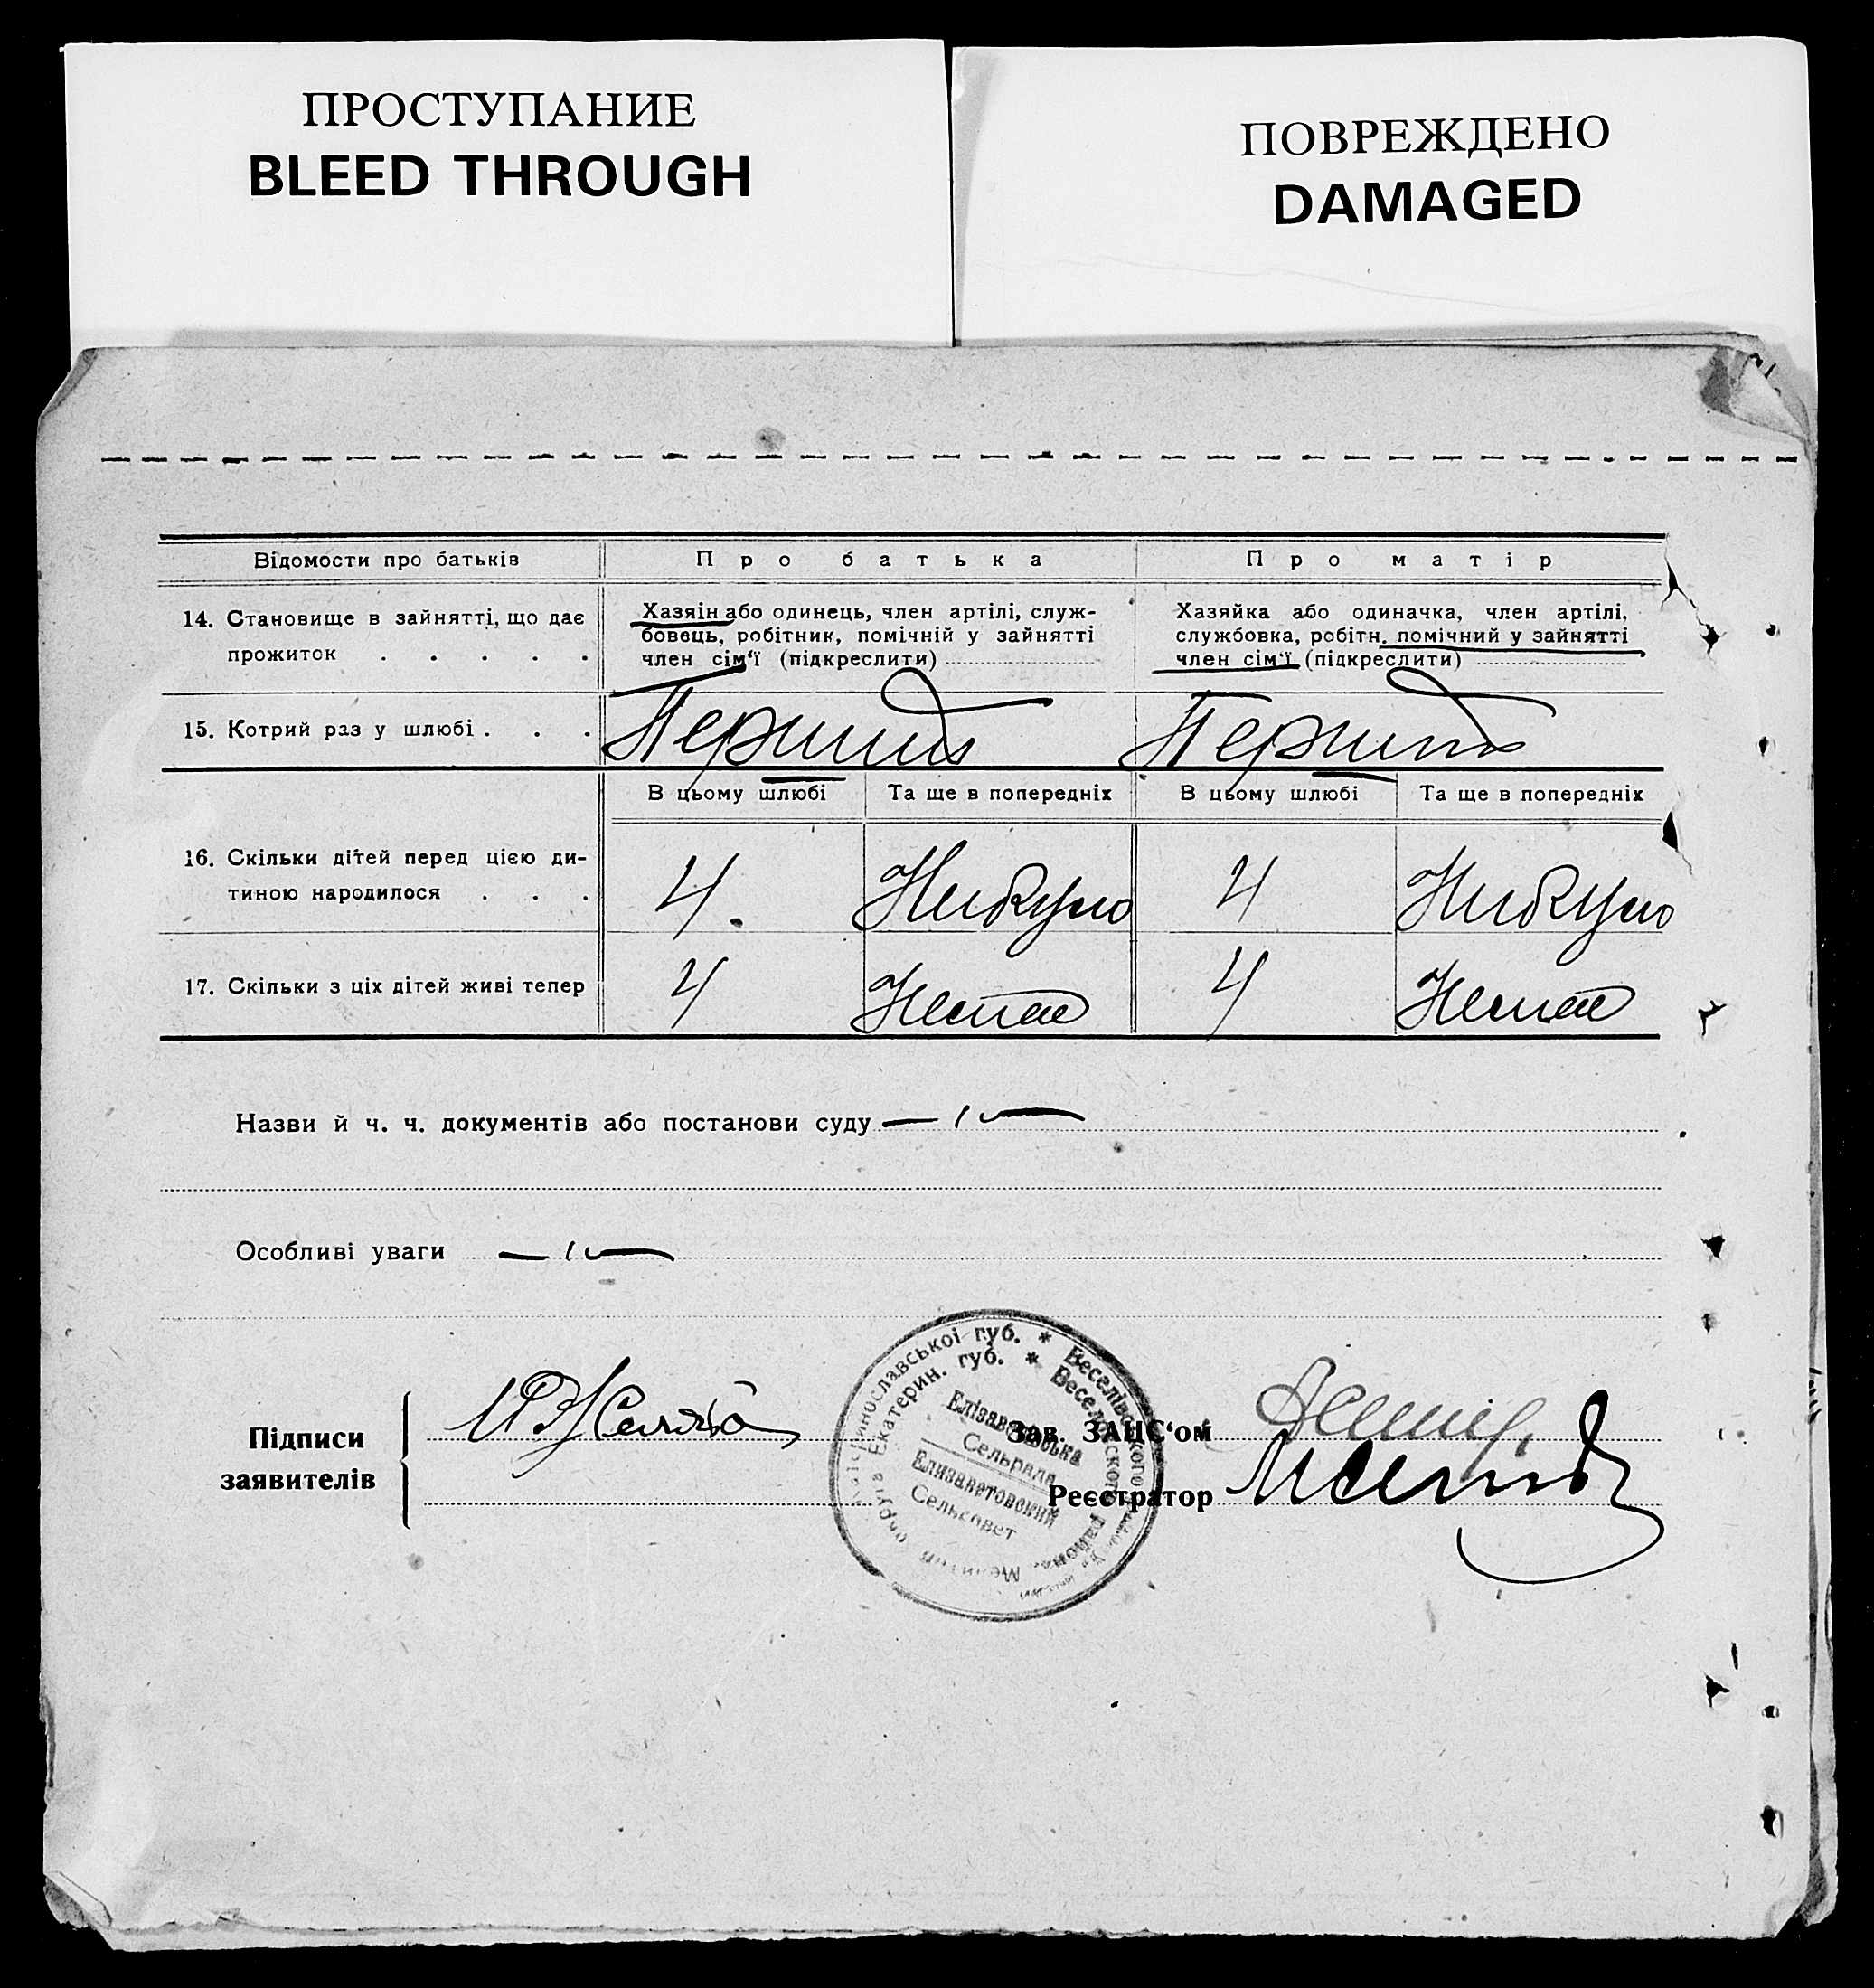 ПРОСТУПАНИЕ
BLEED THROUGH
ПОВРЕЖДЕНО
DAMAGED
Відомости про батьків
Про батька
Про матір
14. Становище в зайнятті, що дає
прожиток . . . . .
Хазяїн або одинець, член артілі, служ-
бовець, робітник, помічній у зайнятті
член сім‘ї (підкреслити)
Хазяйка або одиначка, член артілі,
службовка, робітн. помічний у зайнятті
член сім‘ї (підкреслити)
15. Котрий раз у шлюбі . . .
Перший
Перший
В цьому шлюбі
Та ще в попередніх
В цьому шлюбі
Та ще в попередніх
16. Скільки дітей перед цією ди-
тиною народилося . . .
4.
4
17. Скільки з ціх дітей живі тепер
4
Немає
4
Немає
Назви й ч. ч. документів або постанови суду
Особливі уваги
Підписи
заявителів
Зав. ЗАЦС‘ом
Реєстратор
Катеринославської губ. * Веселівського
Екатерин. губ. * Веселовского района
Єлізаветівська
Сельрада
Елизаветовский
Сельсовет